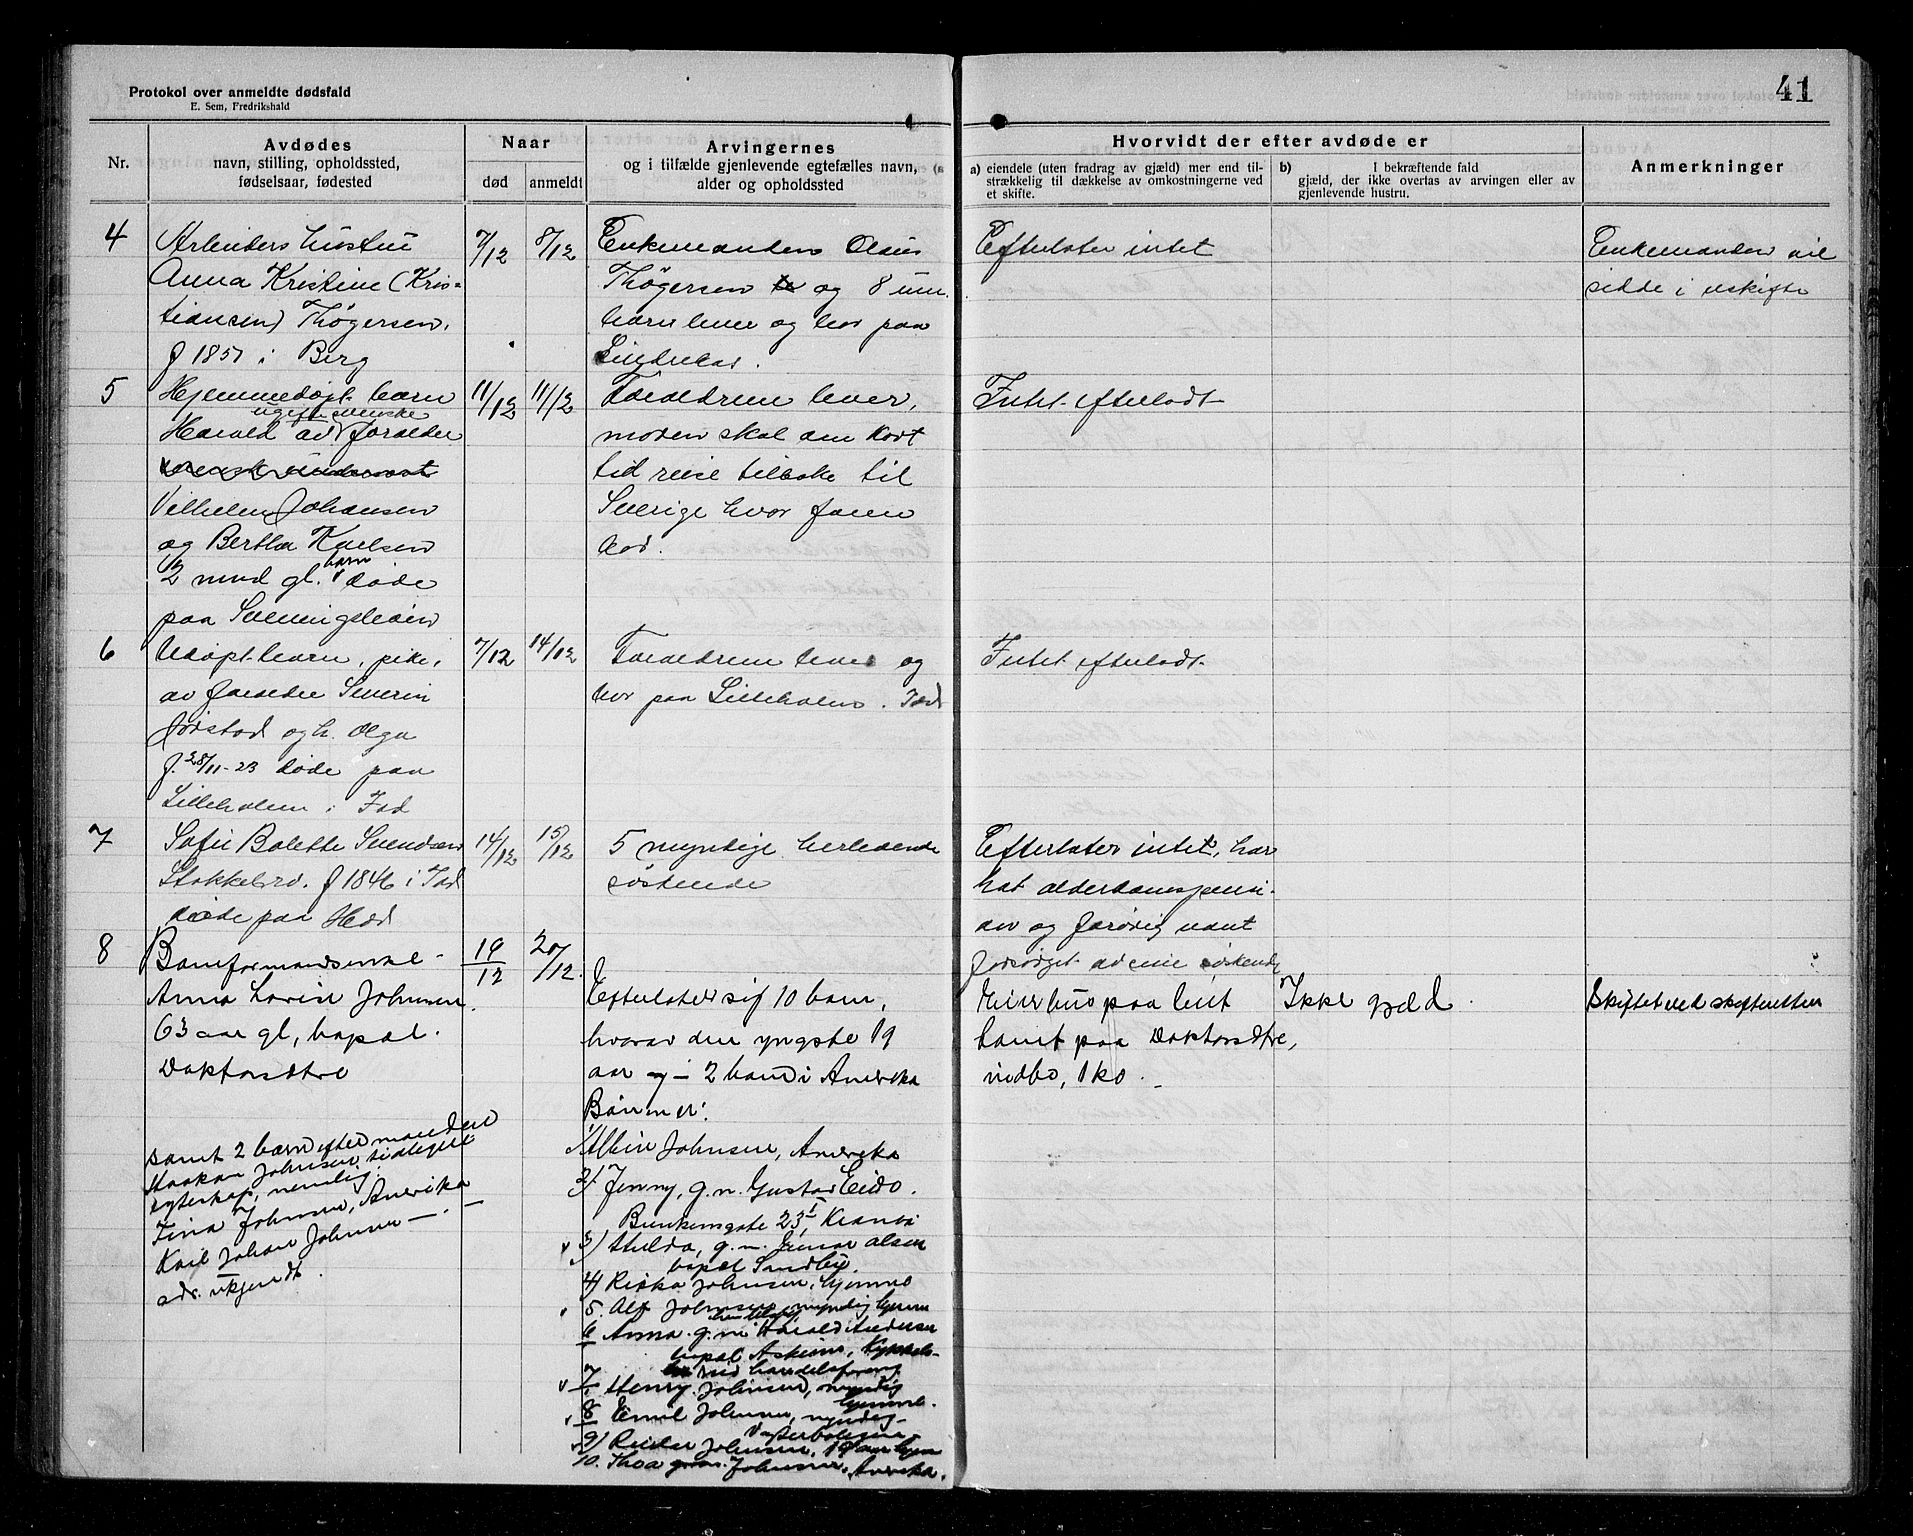 41
Protokol over anmeldte dødsfald
E. Sem, Fredrikshald
Nr.
Avdødes
navn, stilling, opholdssted,
fødselsaar, fødested
Naar
død
anmeldt
Arvingernes
og i tilfælde gjenlevende egtefælles navn,
alder og opholdssted
Hvorvidt der efter avdøde er
a) eiendele (uten fradrag av gjæld) mer end til-
strækkelig til dækkelse av omkostningerne ved
et skifte.
b) I bekræftende fald
gjæld, der ikke overtas av arvingen eller av
gjenlevende hustru.
Anmerkninger
4
Arbeiders hustru
Anna Kristine (Kris=
tiansen) Thøgersen,
f 1857 i Berg
7/12
8/12
Enkemanden Olaus
Thøgersen og 8 
barn lever og bor paa
Efterlater intet
Enkemanden vil
sidde i uskifte
5
Hjemmedøpt barn
ugifte svenske
Harald av forældre
Vilhelm Johansen
og Bertha Karlsen
2 mnd gl. barn døde
paa
11/12
11/12
Forældrene lever,
moren skal om kort
tid reise tilbake til
Sverige hvor faren
bor.
Intet efterladt
6
Udøpt barn, pike,
av forældre Severin
Jørstad og h. Olga
f. 28/11-23 døde paa
Lilleholm i Idd
7/12
14/12
Forældrene lever og
bor paa Lilleholm. Idd
Intet efterladt
7
Sofie Bolette Svendsen
Stokkebro. f 1846 i Idd
døde paa Hed
14/12
15/12
5 myndige herboende
søskende
Efterlater intet, har
hat alderdomspensi-
on og forøvrig vært
forsørget av sine søskende
8
Baneformandsenke -
Anna Lovise Johnsen.
63 aar gl, bopæl.
Doktorsætre
samt 2 barn efter manden
Haakon Johnsen tidligere
egteskap, nemlig:
Tina Johnsen, Amerika
Karl Johan Johnsen — . —
adr. ukjendt.
19
12
20/12.
Efterlater sig 10 barn,
hvorav den yngste 19
aar og - 2 barn i Amerika
Barn er:
1) Albin Johnsen, Amerika
2) Jenny, g.m. Gustav Eido.
23 I, Krania
3) Hulda, g.m. Einar Olsen
bopæl Sundby.
4) Rikka Johnsen, hjemme
5. Alf Johnsen myndig hjem
6 Anna g.m Harald Andersen
bopæl Askim,
ved handelsforening
7/ Henry Johnsen, myndig
hjemme.
8 Emil Johnsen, myndig-
9) Reidar Johnsen, 19 aar hjem
10. Thea Johnsen, Amerika.
Eier hus paa leiet
tomt paa Doktorsætre,
indbo, 1 ko. -
Ikke gjæld.
Skiftet ved skifteretten